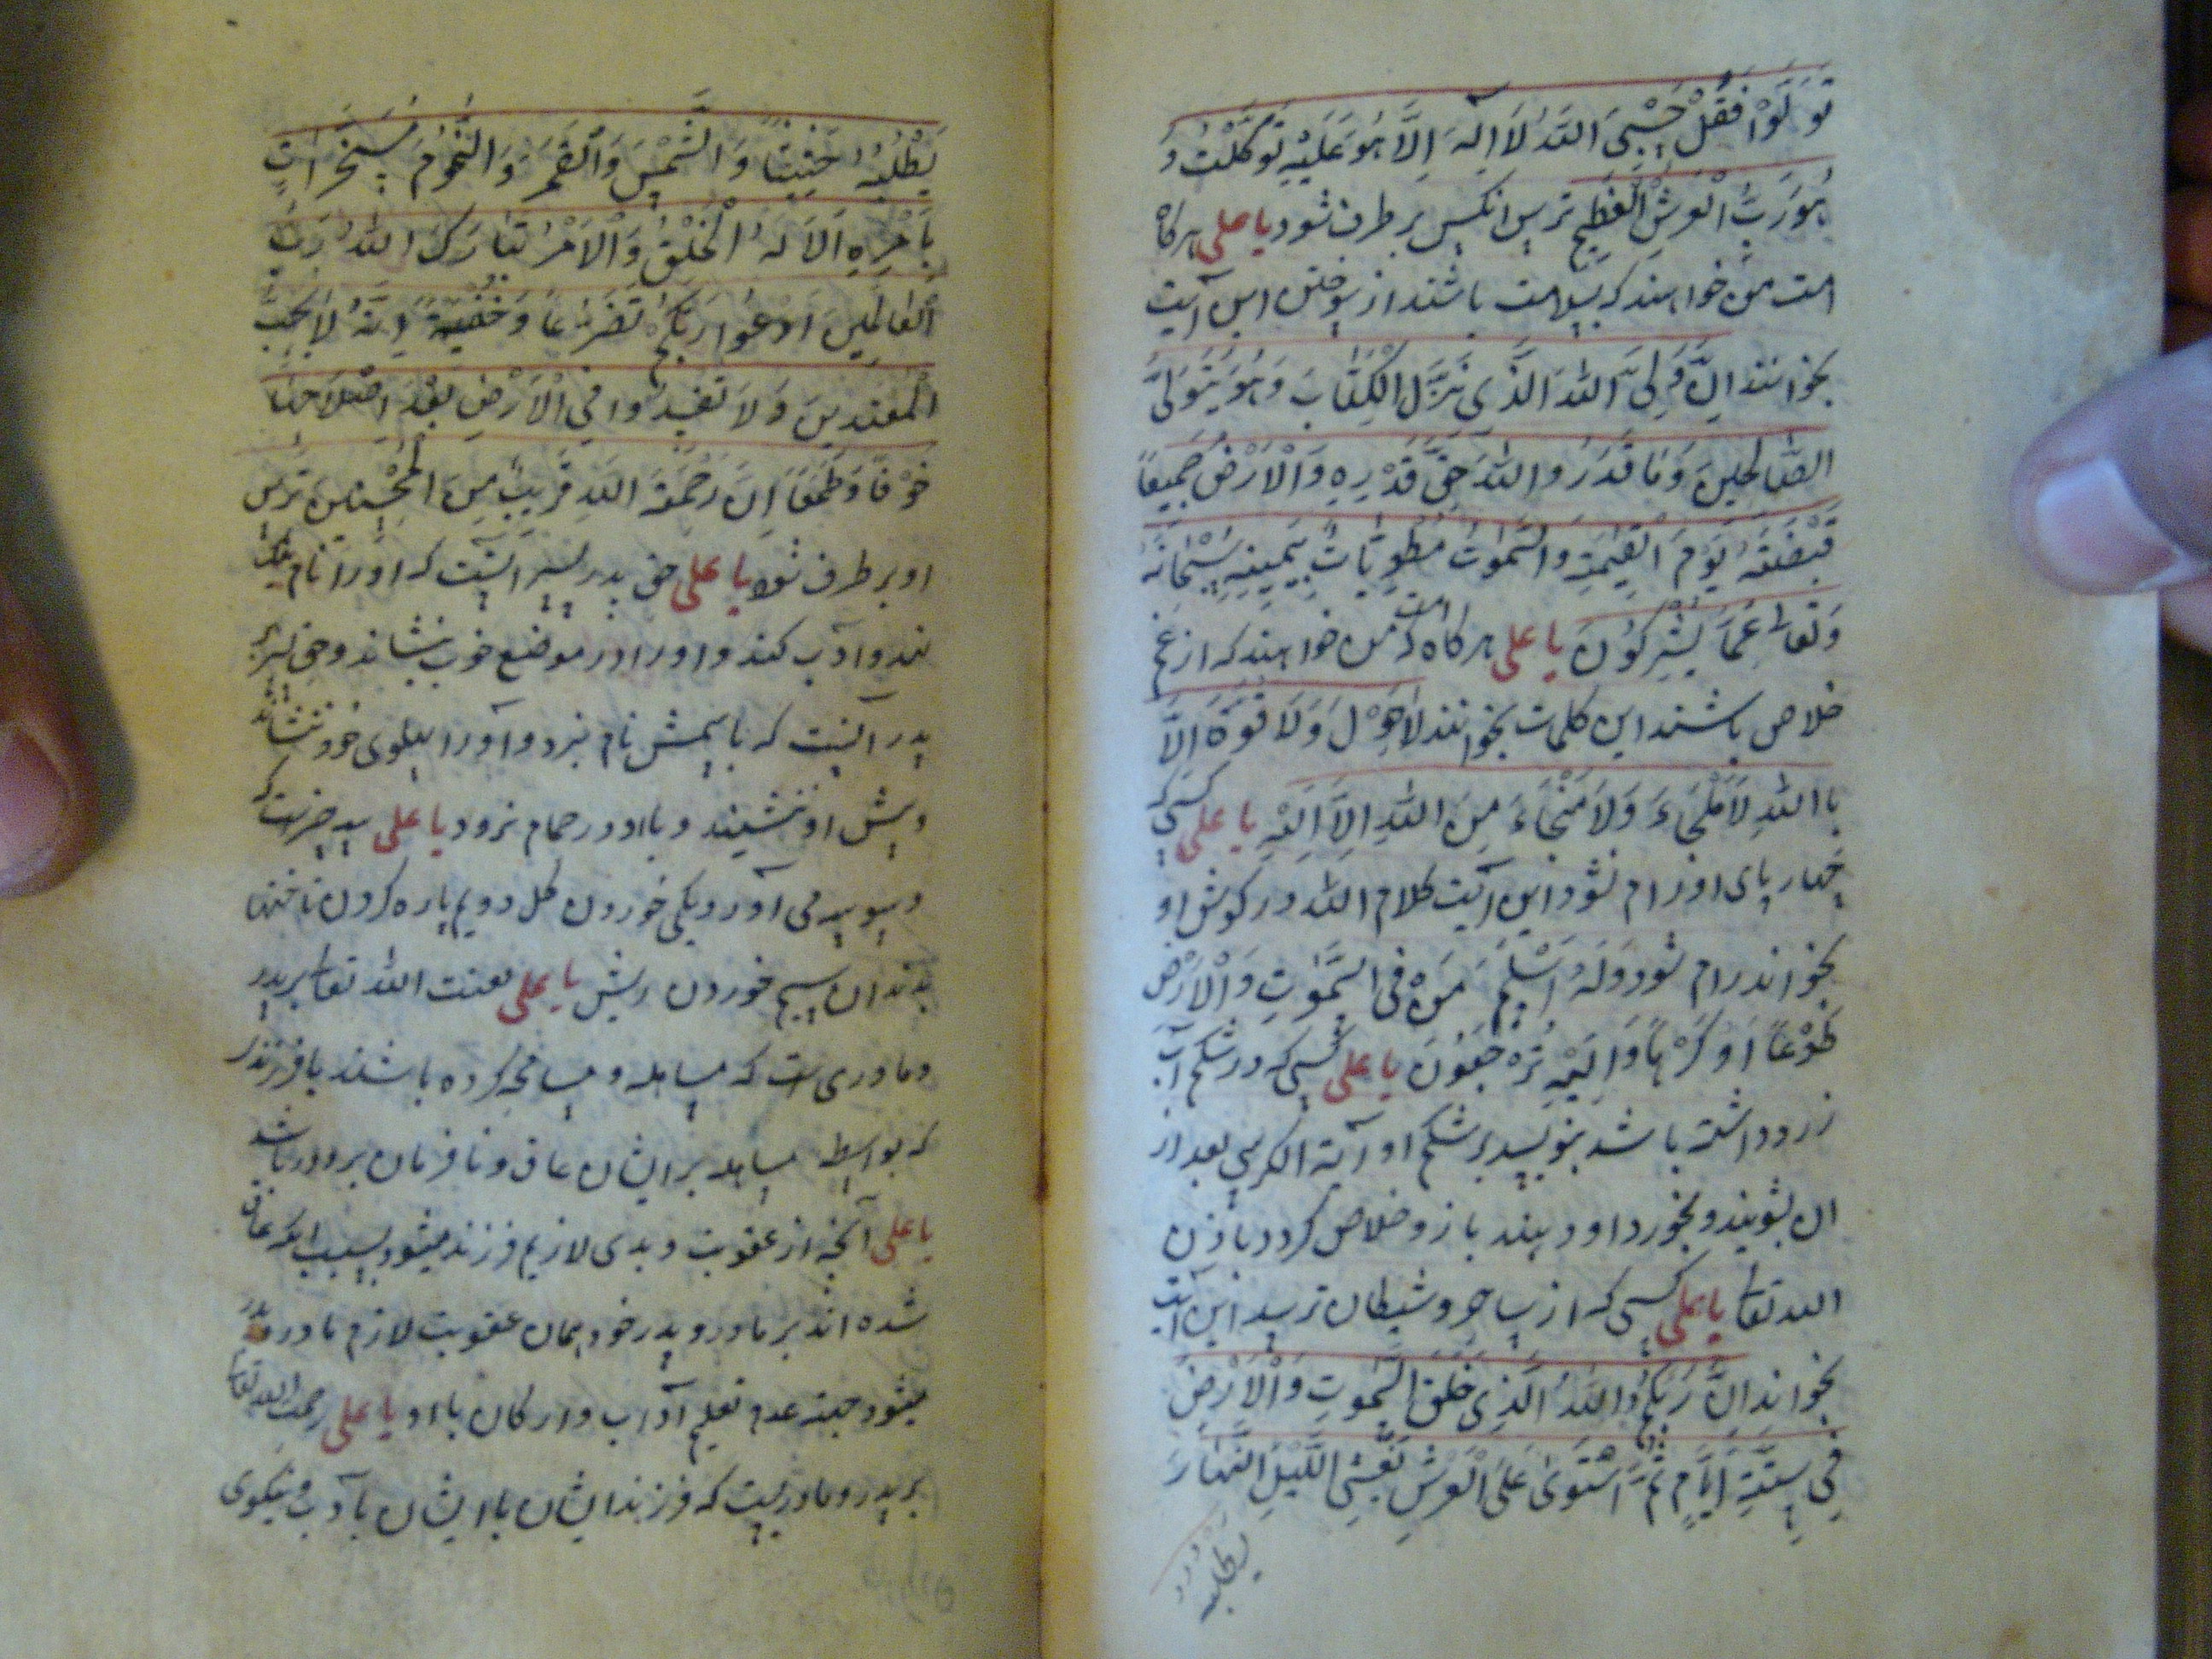 تَوَلَّوْا فَقُلْ حَسْبِیَ اللّٰهُ لَا اِلٰهَ اِلَّا هُوَ عَلَیْهِ تَوَکَّلْتُ وَ
هُوَ رَبُّ الْعَرْشِ الْعَظِیْمِ ترس انکس بر طرف شود یا علی هرکاه
امت من خواهند که بسلامت باشند از سوختن این آیت
بخوانند اِنَّ وَلِیَّ اللّٰهُ الَّذِی نَزَّلَ الْکِتَابَ وَهُوَ یَتَوَلَّی
الصَّالِحِینَ وَمَا قَدَرُوا اللّٰهَ حَقَّ قَدْرِهِ وَالْاَرْضُ جَمِیعًا
قَبْضَتُهُ یَوْمَ الْقِیٰمَةِ وَالسَّمٰوٰتُ مَطْوِیَّاتٌ بِیَمِینِهِ سُبْحَانَهُ
وَتَعَالٰی عَمَّا یُشْرِکُونَ یا علی هرکاه که امت من خواهند که از غم
خلاص باشند این کلمات بخوانند لَا حَوْلَ وَلَا قُوَّةَ اِلَّا
بِاللّٰهِ لَا مَلْجَاءَ وَلَا مَنْجَاءَ مِنَ اللّٰهِ اِلَّا اِلَیْهِ یا علی کسی که
چهار پای او رام نشود این آیت کلام الله در کوش او
بخواند رام شود وَلَهُ اَسْلَمَ مَنْ فِی السَّمٰوٰتِ وَالْاَرْضِ
طَوْعًا اَو کَرْهًا وَاِلَیْهِ تُرْجَعُونَ یا علی کسی که در شکم آب
زرد داشته باشد بنویسد بر شکم او آیة الکرسی بعد از
ان بشویند و بخورد او دهند باز و خلاص کردد باذن
الله تعالی یا علی کسی که از ساحر و شیطان ترسد این آیت
بخواند اِنَّ رَبَّکُمُ اللّٰهُ الَّذِی خَلَقَ السَّمٰوٰتِ وَالْاَرْضَ
فِی سِتَّةِ اَیَّامٍ ثُمَّ اسْتَوٰی عَلَی الْعَرْشِ یُغْشِی اللَّیْلَ النَّهَارَ
یطلبه
یَطْلُبُهُ حَثِیثًا وَالشَّمْسَ وَالْقَمَرَ وَالنُّجُومَ مُسَخَّرَاتٍ
بِاَمْرِهِ اَلَا لَهُ الْخَلْقُ وَالْاَمْرُ تَبَارَکَ اللّٰهُ رَبُّ
الْعَالَمِینَ اُدْعُوا رَبَّکُمْ تَضَرُّعًا وَخُفْیَةً اِنَّهُ لَا یُحِبُّ
الْمُعْتَدِینَ وَلَا تُفْسِدُوا فِی الْاَرْضِ بَعْدَ اِصْلَاحِهَا
خَوْفًا وَطَمَعًا اِنَّ رَحْمَةَ اللّٰهِ قَرِیبٌ مِنَ الْمُحْسِنِینَ ترس
او بر طرف شود یا علی حق پدر پسر آنست که او را نام نیک
نهد و آدب کند و او را در موضع خوب نشاند و حق پسر بر
پدر آنست که باسمش نام نبرد و آورا بپهلوی خود ننشاند
و پیش او ننشیند و با او در حمام نرود یا علی سه چیز است که
وسوسه می آورد یکی خوردن کل دویم پاره کردن ناخنها
بدندان سیم خوردن ریش یا علی لعنت الله تعالی بر پدر
و مادری است که مساهله و مسامحه کرده باشند با فرزند
که بواسطه مساهله بر ایشان عاق و نافرمان بردور باشد
یا علی آنچه از عقوبت و بدی لازم فرزند میشود بسبب انکه عاق
شده اند بر مادر و پدر خود همان عقوبت لازم مادر و پدر
میشود جهة عدم تعلیم آداب و ارکان با او یا علی رحمت الله تعالی
بر پدر و مادریست که فرزند ایشان با ایشان بآدب و نیکوی